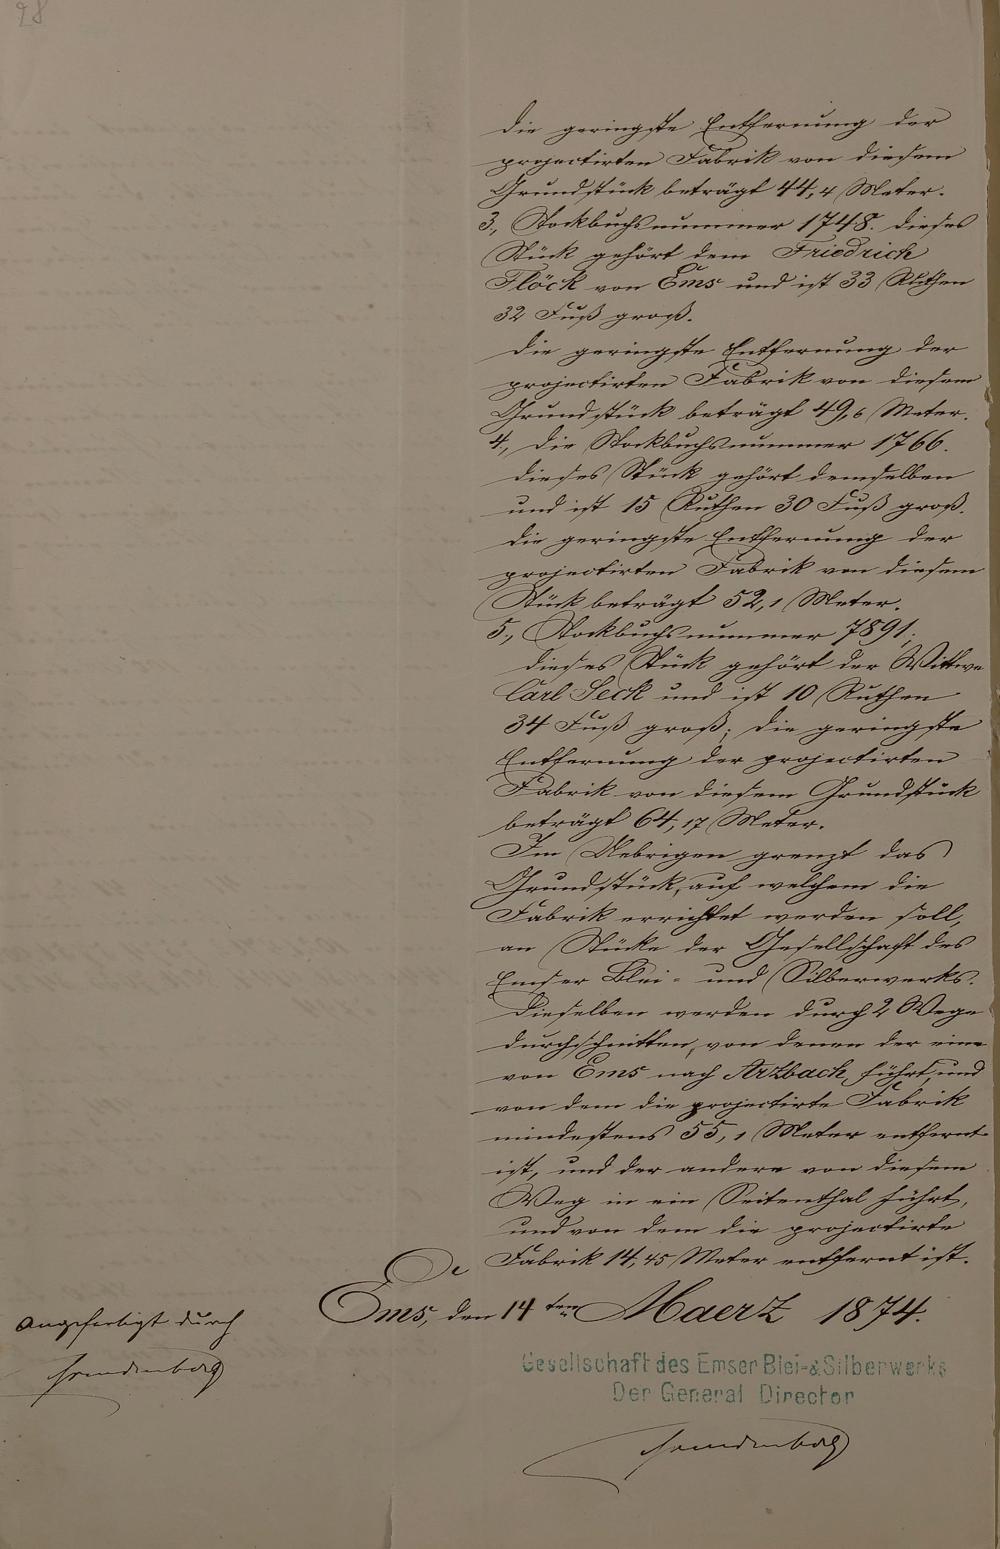 28
die geringste Entfernung der
projectirten Fabrik von diesem
Grundstück beträgt 44,4 Meter.
3., Stockbuchsnummer 1748. dieses
Stück gehört dem Friedrich
Flöck von Ems und ist 33 Ruthen
32 Fuß groß.
die geringste Entfernung der
projectirten Fabrik von diesem
Grundstück beträgt 49,6 Meter.
4., die Stockbuchsnummer 1766.
dieses Stück gehört demselben
und ist 15 Ruthen 30 Fuß groß.
die geringste Entfernung der
projectirten Fabrik von diesem
Stück beträgt 52,1 Meter.
5., Stockbuchsnummer 7891;
dieses Stück gehört der Wittwe
Carl Seck und ist 10 Ruthen
34 Fuß groß; die geringste
Entfernung der projectirten
Fabrik von diesem Grundstück
beträgt 64,17 Meter.
Im Uebrigen grenzt das
Grundstück, auf welchem die
Fabrik errichtet werden soll,
an Stücke der Gesellschaft des
Emser Blei- und Silberwerks.
dieselben werden durch 2 Wege
durchschnitten, von denen der eine
von Ems nach Arzbach führt, und
von dem die projectirte Fabrik
mindestens 55,1 Meter entfernt
ist, und der andere von diesem
Weg in ein Seitenthal führt,
und von dem die projectirte
Fabrik 14,45 Meter entfernt ist.
Ems, den 14ten Maerz 1874.
Angefertigt durch
Gesellschaft des Emser Blei- & Silberwerks
Der General Director